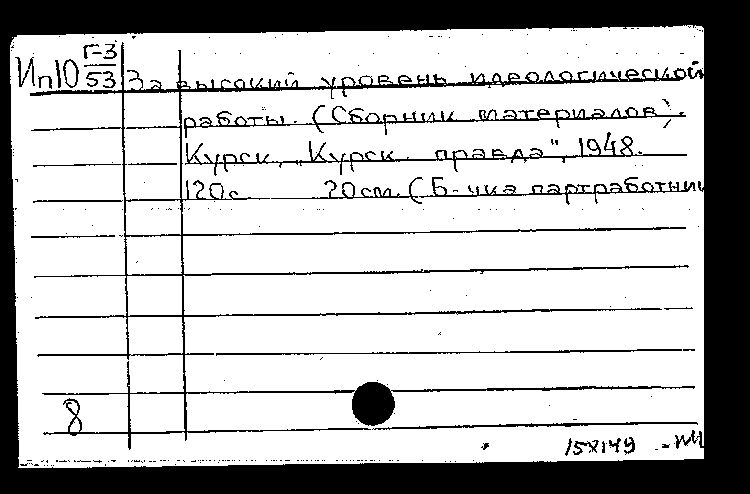 Ип10 Г-3/53 За высокий уровень идеологической
работы. (Сборник материалов).
Курск, "Курск. правда", 1948.
120с 20см. (Б-чка партработник
8